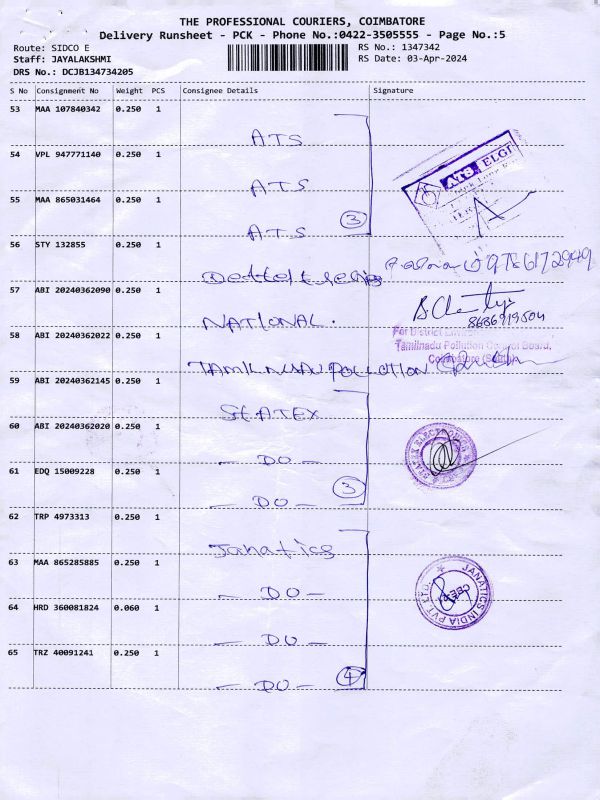 THE PROFESSIONAL COURIERS, COIMBATORE
Delivery Runsheet - PCK - Phone No.:0422-3505555 - Page No.:5
Route: SIDCO E
RS No.: 1347342
Staff: JAYALAKSHMI
RS Date: 03-Apr-2024
DRS No.: DCJB134734205
S No Consignment No Weight PCS Consignee Details Signature
53 MAA 107840342 0.250 1
ATS
54 VPL 947771140 0.250 1
ATS
ATS ELGI
55 MAA 865031464 0.250 1
ATS
3
56 STY 132855 0.250 1
57 ABI 20240362090 0.250 1
NATIONAL.
58 ABI 20240362022 0.250 1
For District
Tamilnadu Pollution Control Board,
TAMILNADU POLLUTION
59 ABI 20240362145 0.250 1
STATEX
60 ABI 20240362020 0.250 1
- DO -
61 EDQ 15009228 0.250 1
- DO -
3
62 TRP 4973313 0.250 1
Janatics
63 MAA 865285885 0.250 1
- DO -
JANATICS INDIA PVT. LTD.
64 HRD 360081824 0.060 1
- DO -
65 TRZ 40091241 0.250 1
- DO -
4